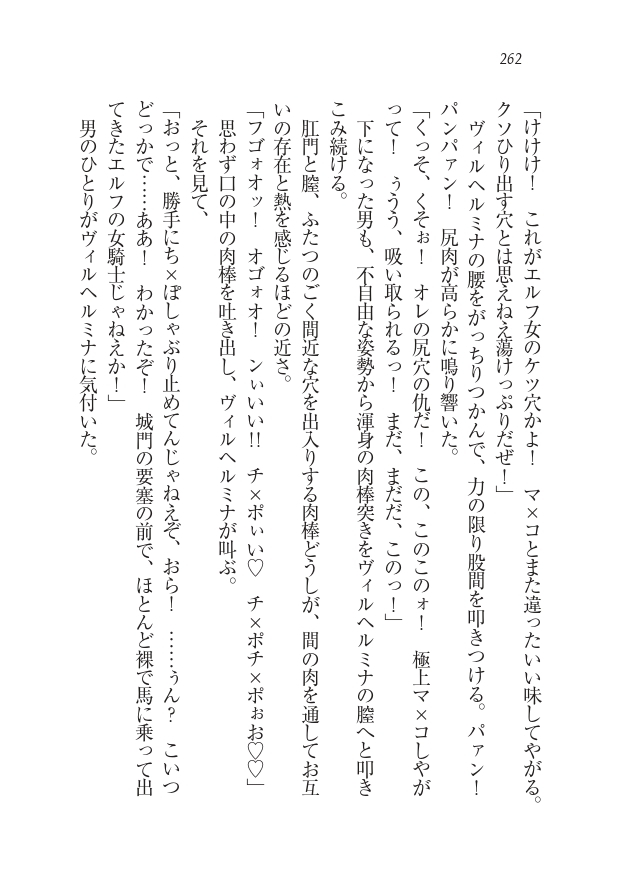 262
「けけけ!　これがエルフ女のケツ穴かよ!　マ×コとまた違ったいい味してやがる。
クソひり出す穴とは思えねえ蕩けっぷりだぜ!」
　ヴィルヘルミナの腰をがっちりつかんで、力の限り股間を叩きつける。パァン!
パンパァン!　尻肉が高らかに鳴り響いた。
「くっそ、くそぉ!　オレの尻穴の仇だ!　この、このこのォ!　極上マ×コしやが
って!　ぅうう、吸い取られるっ!　まだ、まだだ、このっ!」
　下になった男も、不自由な姿勢から渾身の肉棒突きをヴィルヘルミナの膣へと叩き
こみ続ける。
　肛門と膣、ふたつのごく間近な穴を出入りする肉棒どうしが、間の肉を通してお互
いの存在と熱を感じるほどの近さ。
「フゴォオッ!　オゴォオ!　ンぃいい!!　チ×ポぃい♡　チ×ポチ×ポぉお♡♡」
　思わず口の中の肉棒を吐き出し、ヴィルヘルミナが叫ぶ。
　それを見て、
「おっと、勝手にち×ぽしゃぶり止めてんじゃねえぞ、おら!　……ぅん?　こいつ
どっかで……ああ!　わかったぞ!　城門の要塞の前で、ほとんど裸で馬に乗って出
てきたエルフの女騎士じゃねえか!」
　男のひとりがヴィルヘルミナに気付いた。